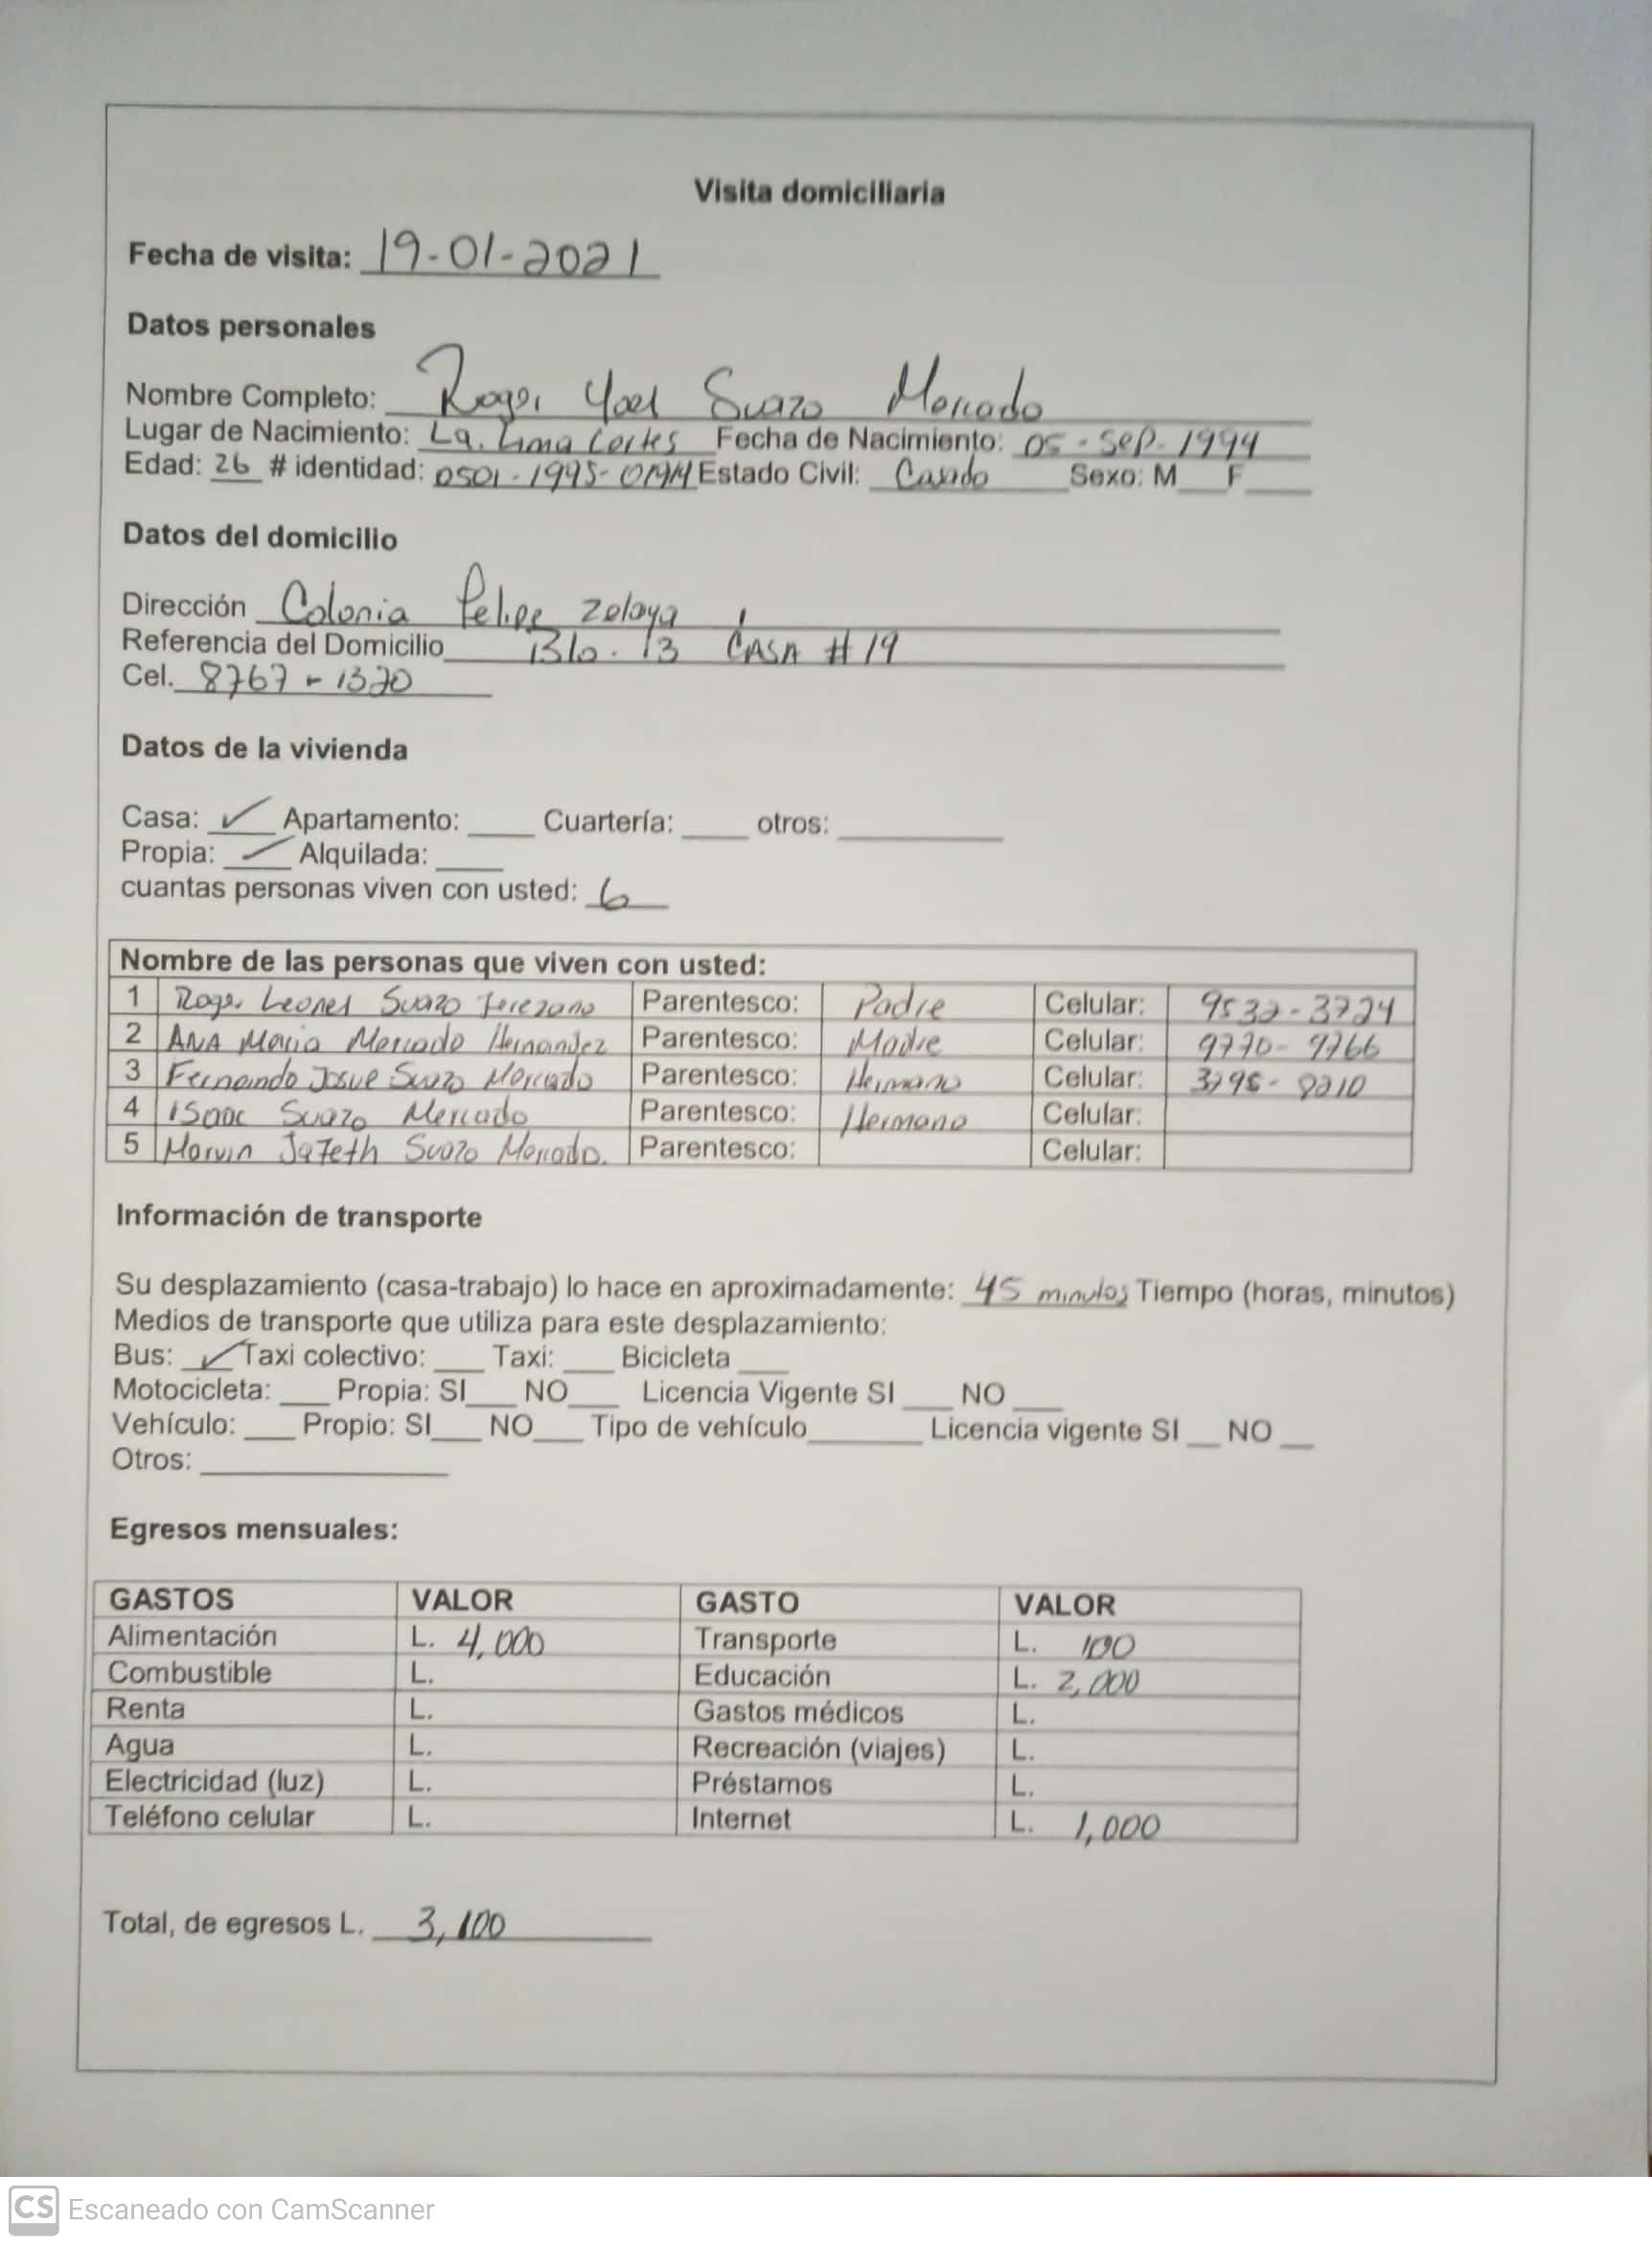 Visita domiciliaria
Fecha de visita: 19-01-2021
Datos personales
Nombre Completo: Roger Yoel Suazo Mercado
Lugar de Nacimiento: La. Lima Cortes Fecha de Nacimiento: 05 - Sep - 1994
Edad: 26 # identidad: 0501 - 1995- Estado Civil: Casado Sexo: M___ F____
Datos del domicilio
Dirección Colonia Felipe Zelaya
Referencia del Domicilio Blo. 13 CASA # 19
Cel. 8767 - 1320
Datos de la vivienda
Casa: ✓ Apartamento: ____ Cuartería: ____ otros: ________
Propia: ✓ Alquilada: ____
cuantas personas viven con usted: 6
Nombre de las personas que viven con usted:
1 Roger Leonel Suazo Jerezano Parentesco: Padre Celular: 9532-3724
2 ANA Maria Mercado Hernandez Parentesco: Madre Celular: 9770-9766
3 Fernando Josue Suazo Mercado Parentesco: Hermano Celular: 3295-8210
4 ISaac Suazo Mercado Parentesco: Hermano Celular:
5 Marvin Jafeth Suazo Mercado. Parentesco: Celular:
Información de transporte
Su desplazamiento (casa-trabajo) lo hace en aproximadamente: 45 minutos Tiempo (horas, minutos)
Medios de transporte que utiliza para este desplazamiento:
Bus: ✓ Taxi colectivo: ___ Taxi: ___ Bicicleta ___
Motocicleta: ___ Propia: SI___ NO___ Licencia Vigente SI ___ NO ___
Vehículo: ___ Propio: SI___ NO___ Tipo de vehículo_______ Licencia vigente SI __ NO __
Otros: ______________
Egresos mensuales:
GASTOS VALOR GASTO VALOR
Alimentación L. 4,000 Transporte L. 100
Combustible L. Educación L. 2,000
Renta L. Gastos médicos L.
Agua L. Recreación (viajes) L.
Electricidad (luz) L. Préstamos L.
Teléfono celular L. Internet L. 1,000
Total, de egresos L. 3,100
CS Escaneado con CamScanner